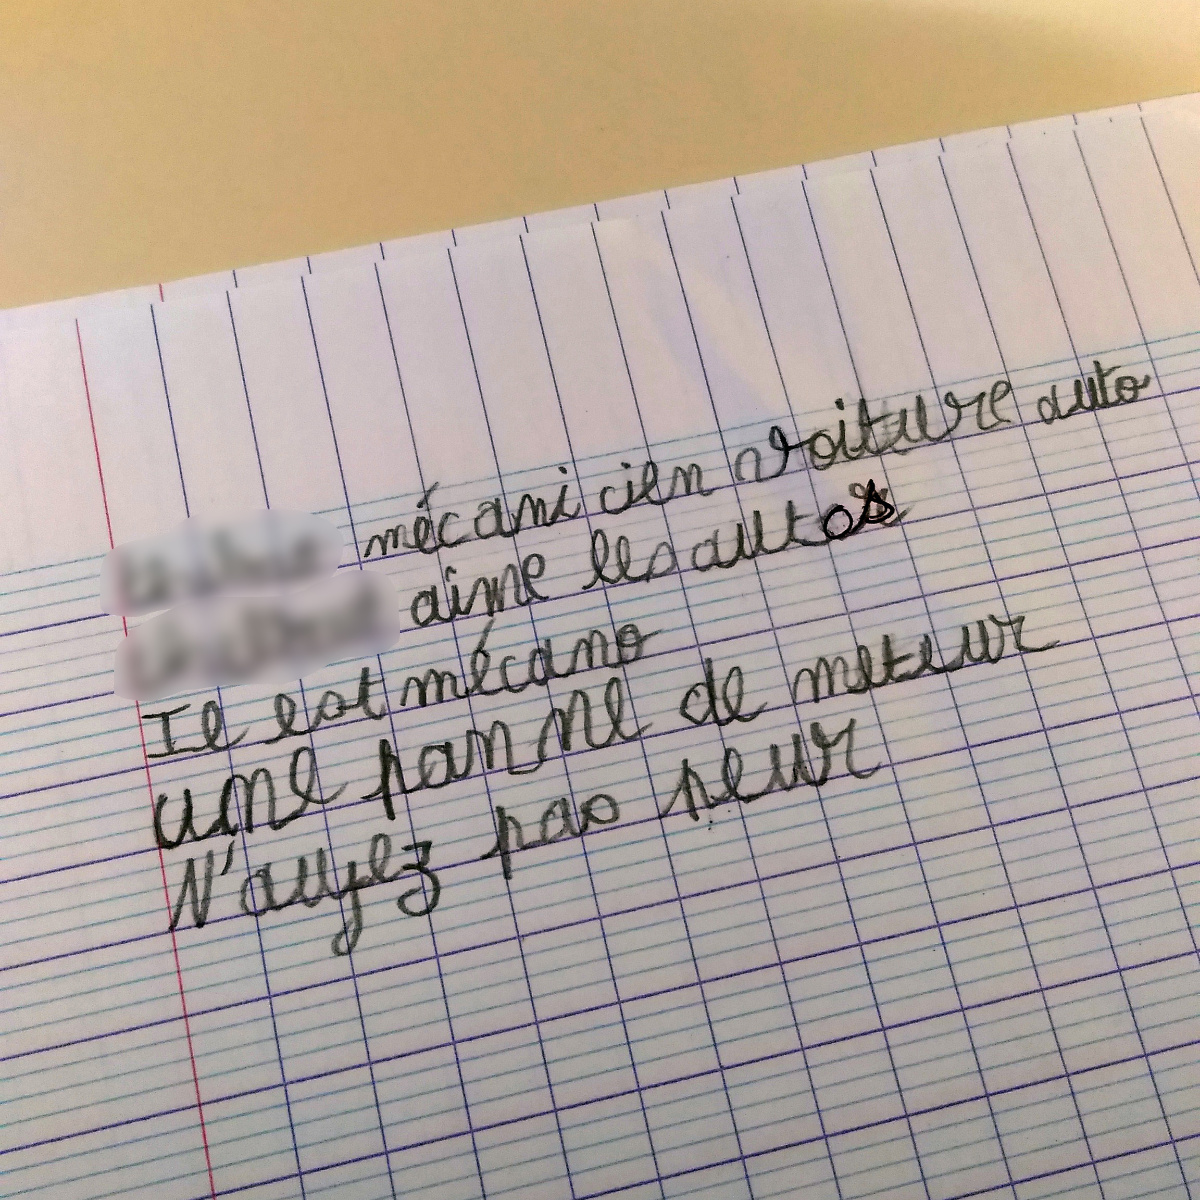 mécanicien voiture auto
aime les autos
Il est mécano
une panne de moteur
N'ayez pas peur